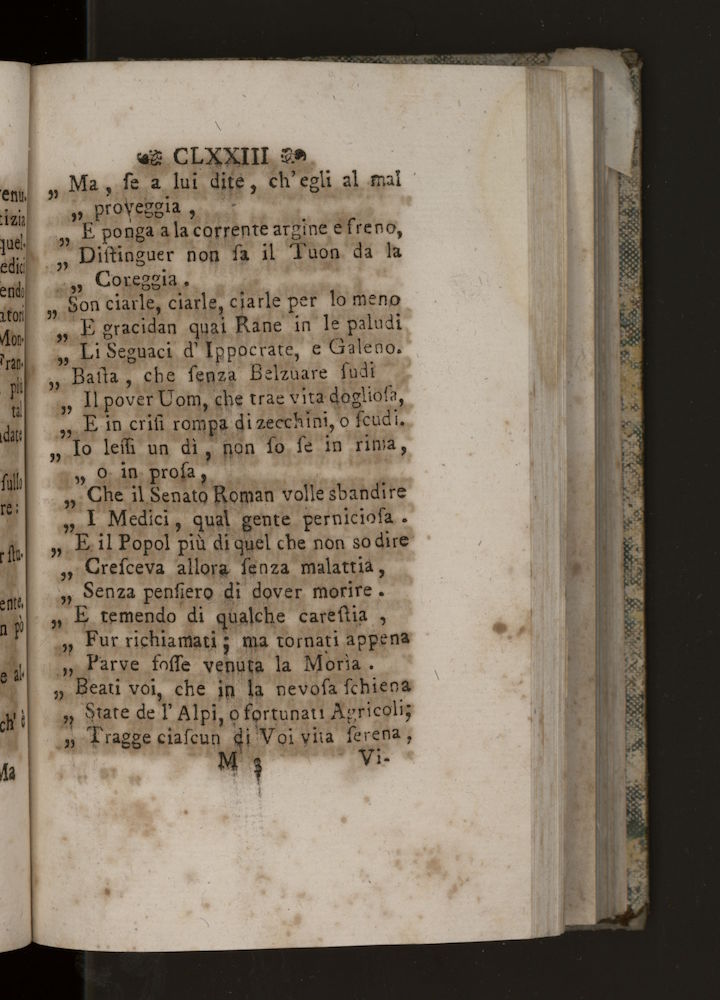 CLXXIII
„ Ma, ſe a lui dite, ch'egli al mal
„ proveggia,
„ E ponga a la corrente argine e freno,
„ Diſtinguer non ſa il Tuon da la
„ Coreggia.
„ Son ciarle, ciarle, ciarle per lo meno
„ E gracidan quai Rane in le paludi
„ Li Seguaci d' Ippocrate, e Galeno.
„ Baſta, che ſenza Belzuare ſudi
„ Il pover Uom, che trae vita doglioſa,
„ E in criſi rompa di zecchini, o ſcudi.
„ Io leſſi un dì, non ſo ſe in rima,
„ o in proſa,
„ Che il Senato Roman volle sbandire
„ I Medici, qual gente pernicioſa.
„ E il Popol più di quel che non so dire
„ Creſceva allora ſenza malattia,
„ Senza penſiero di dover morire.
„ E temendo di qualche careſtia,
„ Fur richiamati; ma tornati appena
„ Parve foſſe venuta la Morìa.
„ Beati voi, che in la nevoſa ſchiena
„ State de l' Alpi, o fortunati Agricoli;
„ Tragge ciaſcun di Voi vita ſerena,
M 3 Vi-